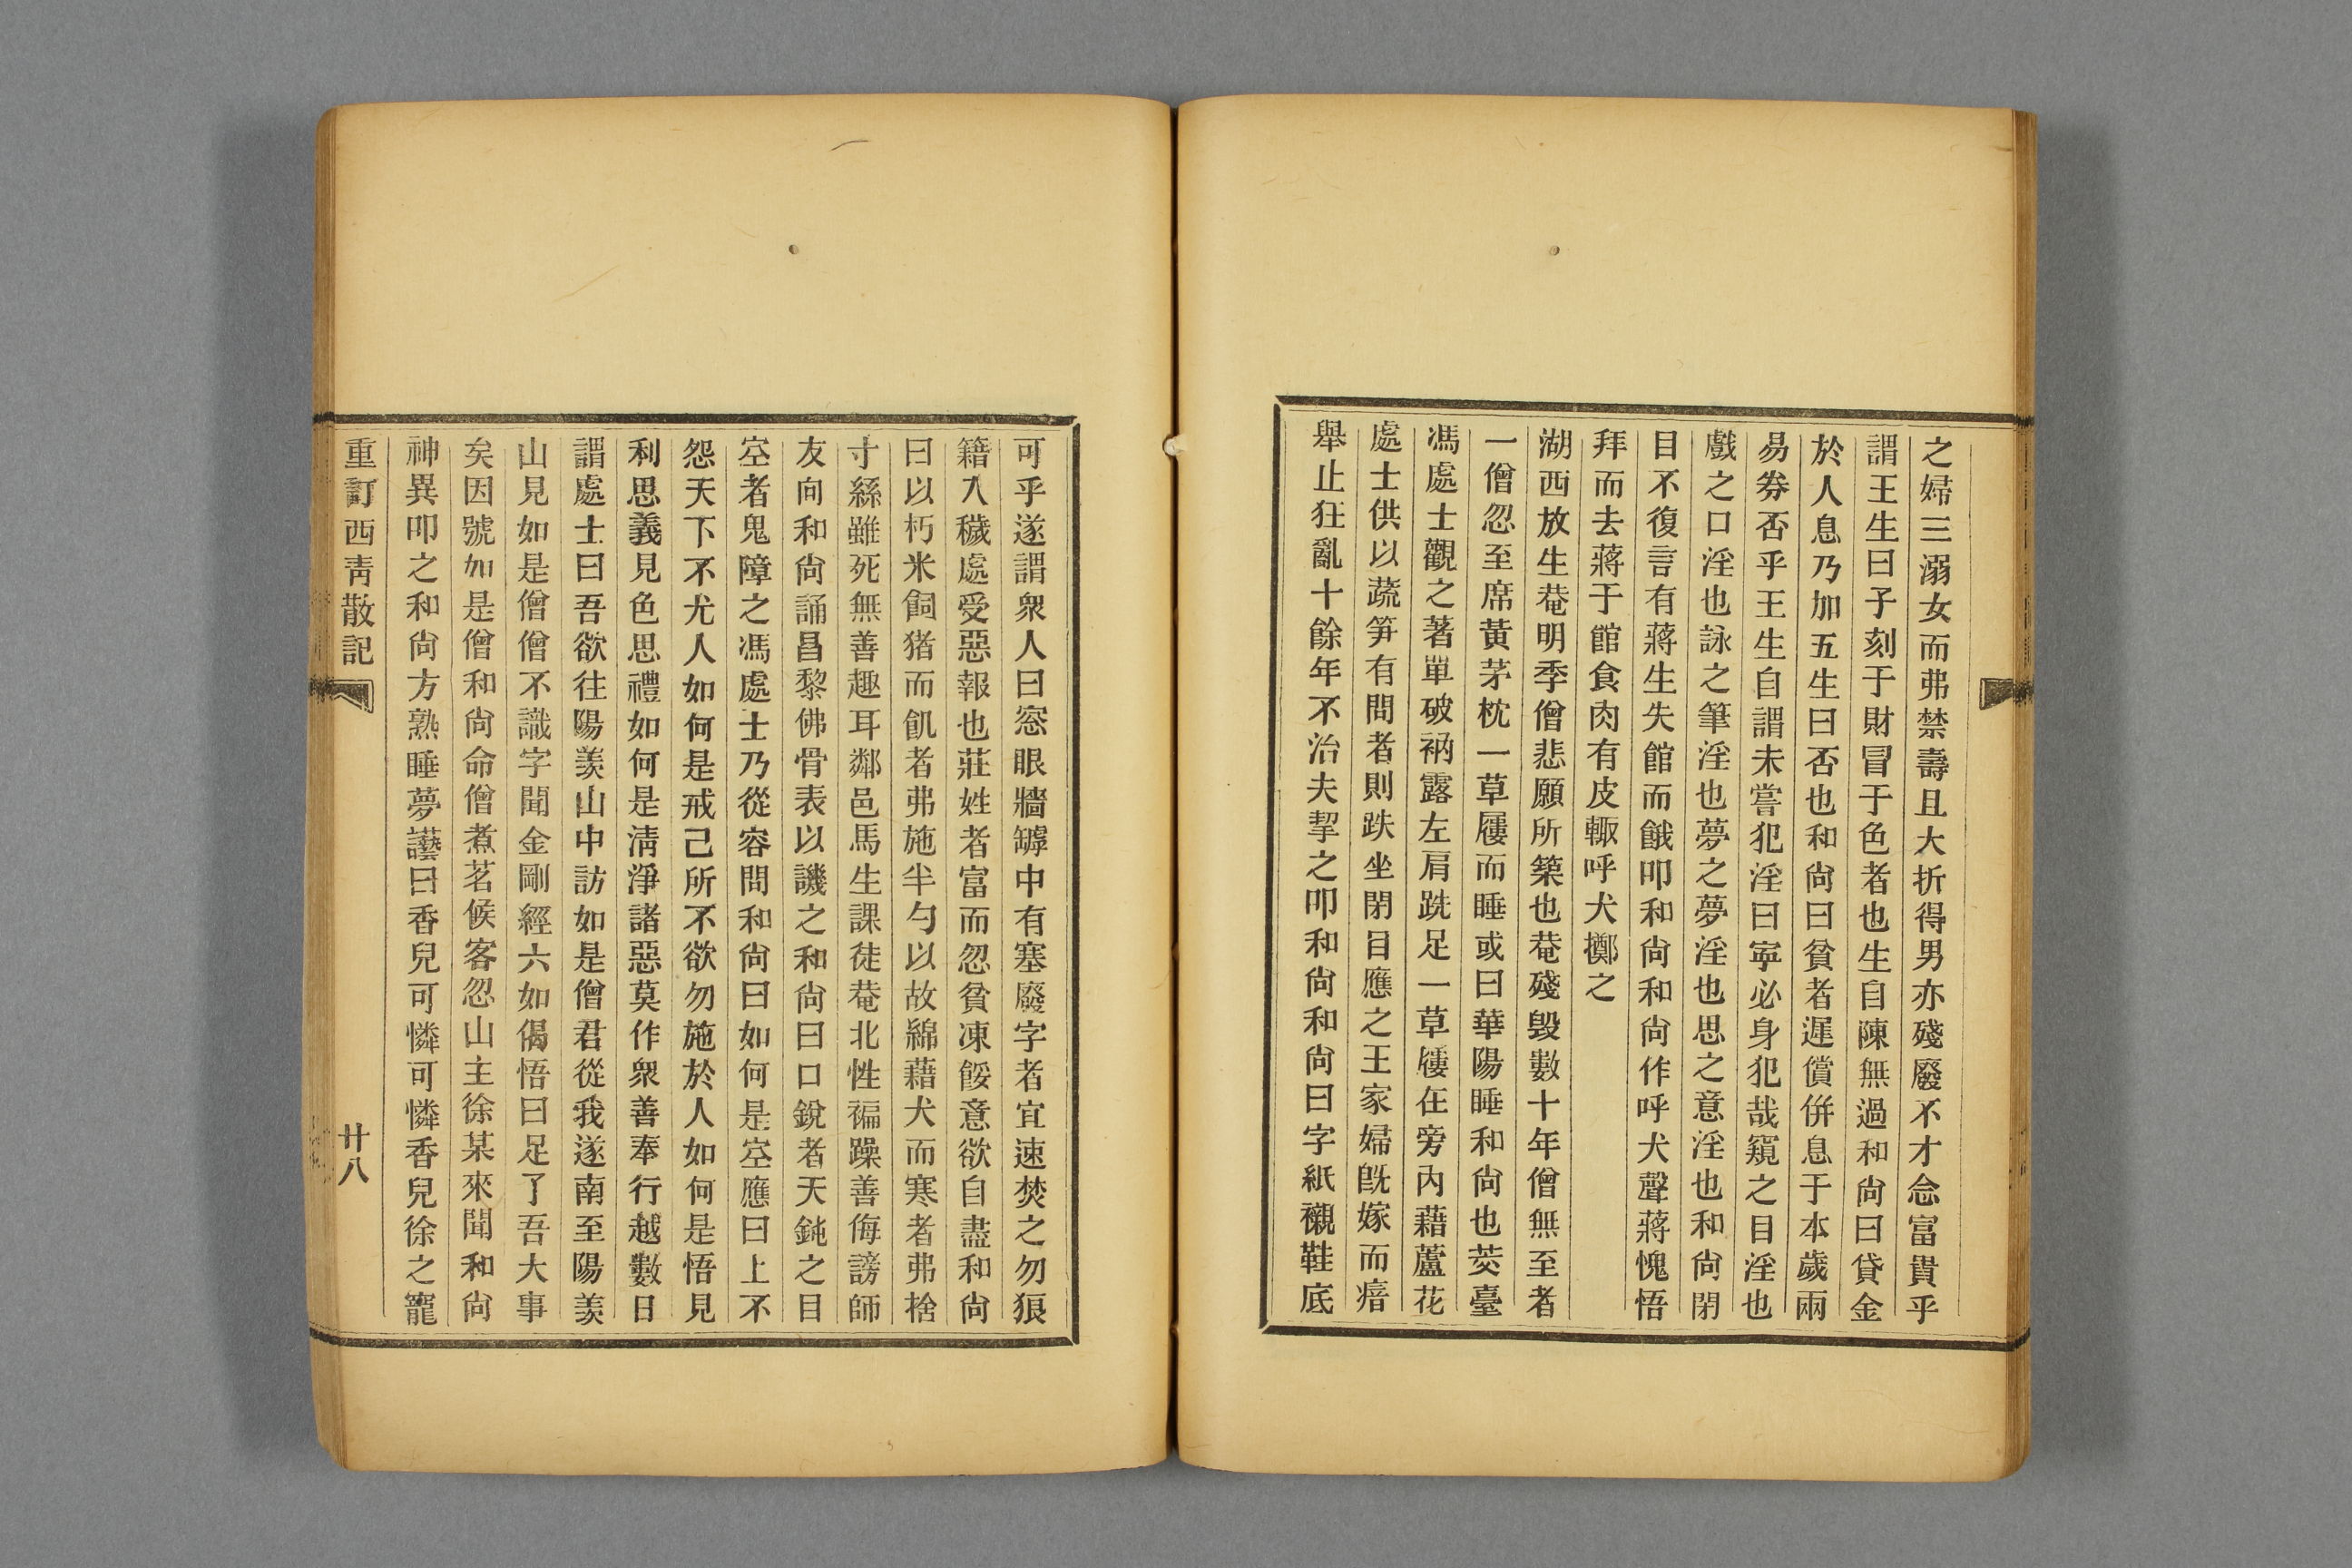 之婦三溺女而弗禁壽且大折得男亦殘廢不才念富貴乎
謂王生曰子刻于財冒于色者也生自陳無過和尙曰貸金
於人息乃加五生曰否也和尙曰貧者遲償倂息于本歲兩
易券否乎王生自謂未嘗犯淫曰寧必身犯哉窺之目淫也
戲之口淫也詠之筆淫也夢之夢淫也思之意淫也和尙閉
目不復言有蔣生失館而餓叩和尙和尙作呼犬聲蔣愧悟
拜而去蔣于館食肉有皮輙呼犬擲之
湖西放生菴明季僧悲願所築也菴殘毀數十年僧無至者
一僧忽至席黃茅枕一草屨而睡或曰華陽睡和尙也茭臺
馮處士觀之著單破衲露左肩跣足一草屨在旁內藉蘆花
處士供以蔬笋有問者則趺坐閉目應之王家婦旣嫁而瘖
舉止狂亂十餘年不治夫挈之叩和尙和尙曰字紙襯鞋底
可乎遂謂衆人曰窓眼牆罅中有塞廢字者宜速焚之勿狠
籍入穢處受惡報也莊姓者富而忽貧凍餒意欲自盡和尙
曰以朽米飼猪而飢者弗施半勺以故綿藉犬而寒者弗捨
寸絲雖死無善趣耳鄰邑馬生課徒菴北性褊躁善侮謗師
友向和尙誦昌黎佛骨表以譏之和尙曰口銳者天鈍之目
空者鬼障之馮處士乃從容問和尙曰如何是空應曰上不
怨天下不尤人如何是戒己所不欲勿施於人如何是悟見
利思義見色思禮如何是淸淨諸惡莫作衆善奉行越數日
謂處士曰吾欲往陽羨山中訪如是僧君從我遂南至陽羨
山見如是僧僧不識字聞金剛經六如偈悟曰足了吾大事
矣因號如是僧和尙命僧煮茗候客忽山主徐某來聞和尙
神異叩之和尙方熟睡夢讛曰香兒可憐可憐香兒徐之寵
重訂西靑散記
廿八